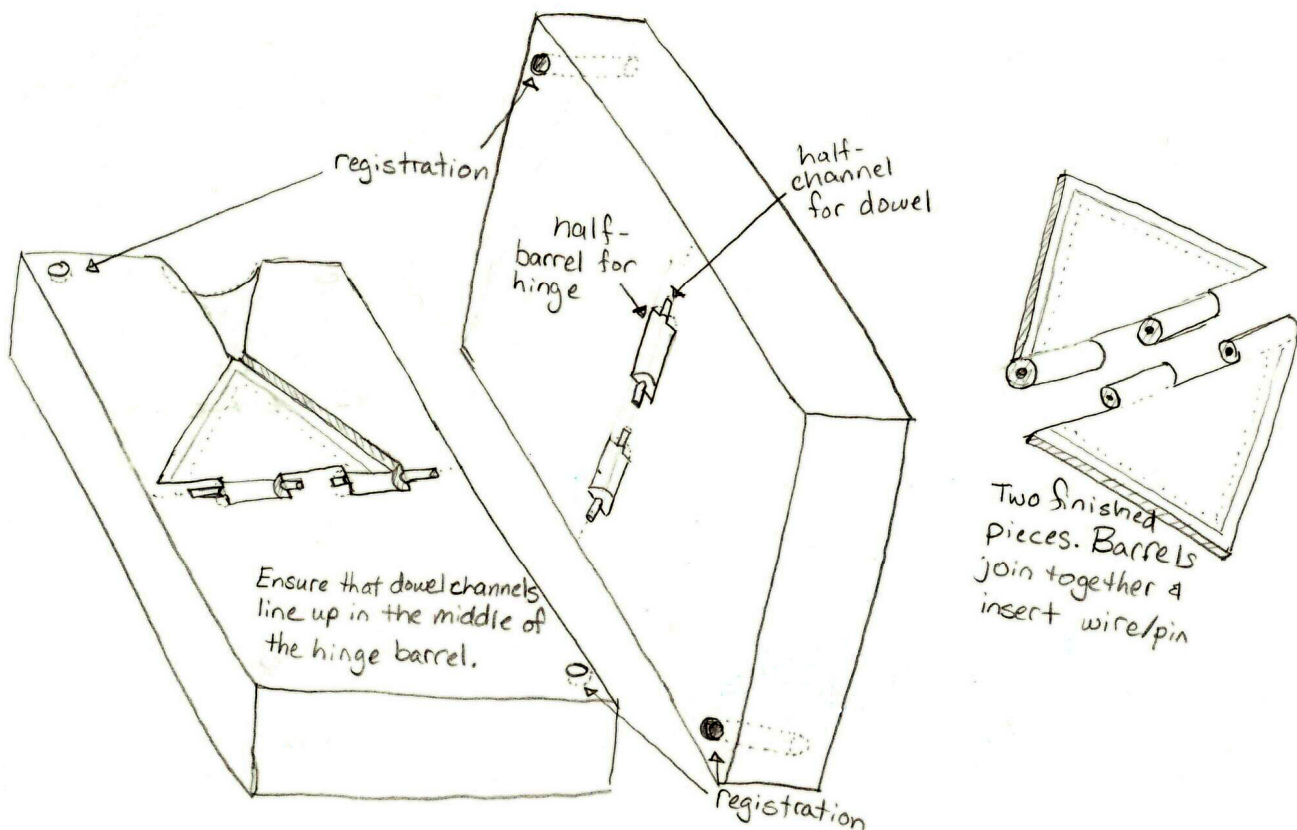 registration
half-
channel
for dowel
half-
barrel for
hinge
Ensure that dowel channels
line up in the middle of
the hinge barrel.
registration
Two finished
pieces. Barrels
join together &
insert wire/pin